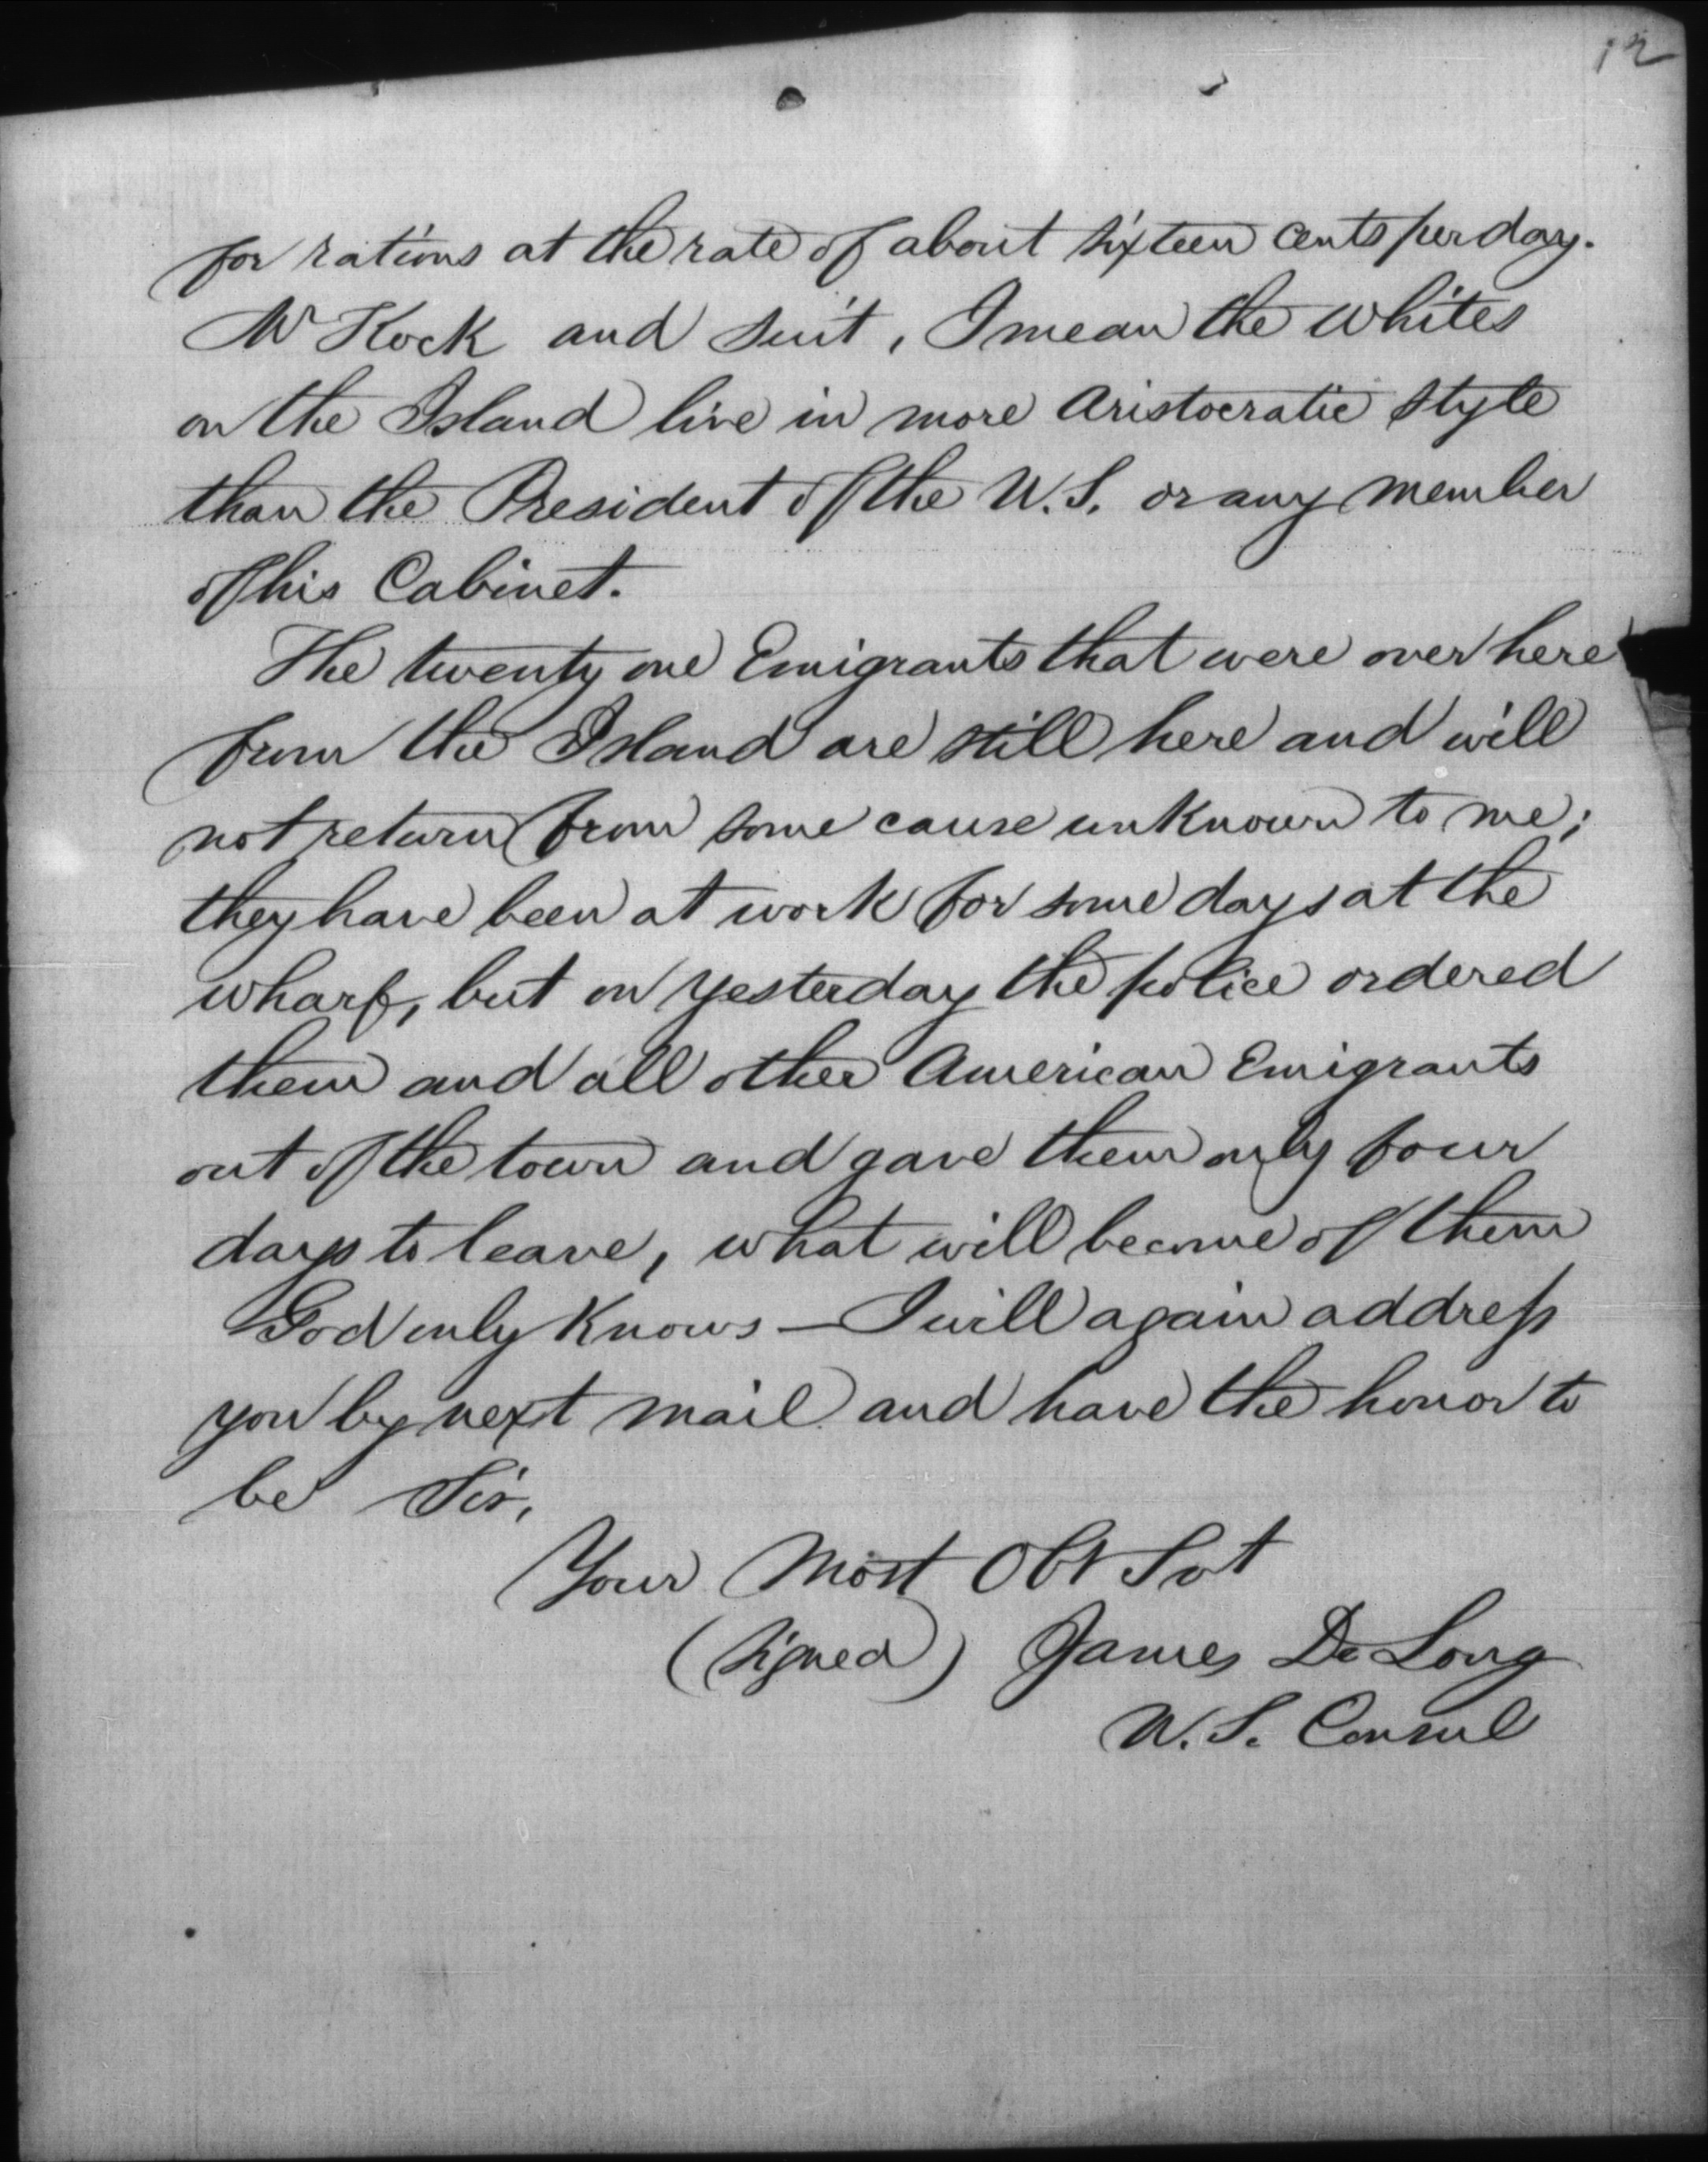 12
for rations at the rate of about sixteen Cents per day.
Mr Kock and suit, I mean the whites
on the Island live in more Aristocratic style
than the President of the U.S. or any member
of his Cabinet.
The twenty one Emigrants that were over here
from the Island are still here and will
not return from some cause unknown to me;
they have been at work for some days at the
wharf, but on yesterday the police ordered
them and all other American Emigrants
out of the town and gave them only four
days to leave, what will become of them
God only knows — I will again address
you by next mail and have the honor to
be Sir,
Your Most Obt Svt
(signed) James De Long
U.S. Consul